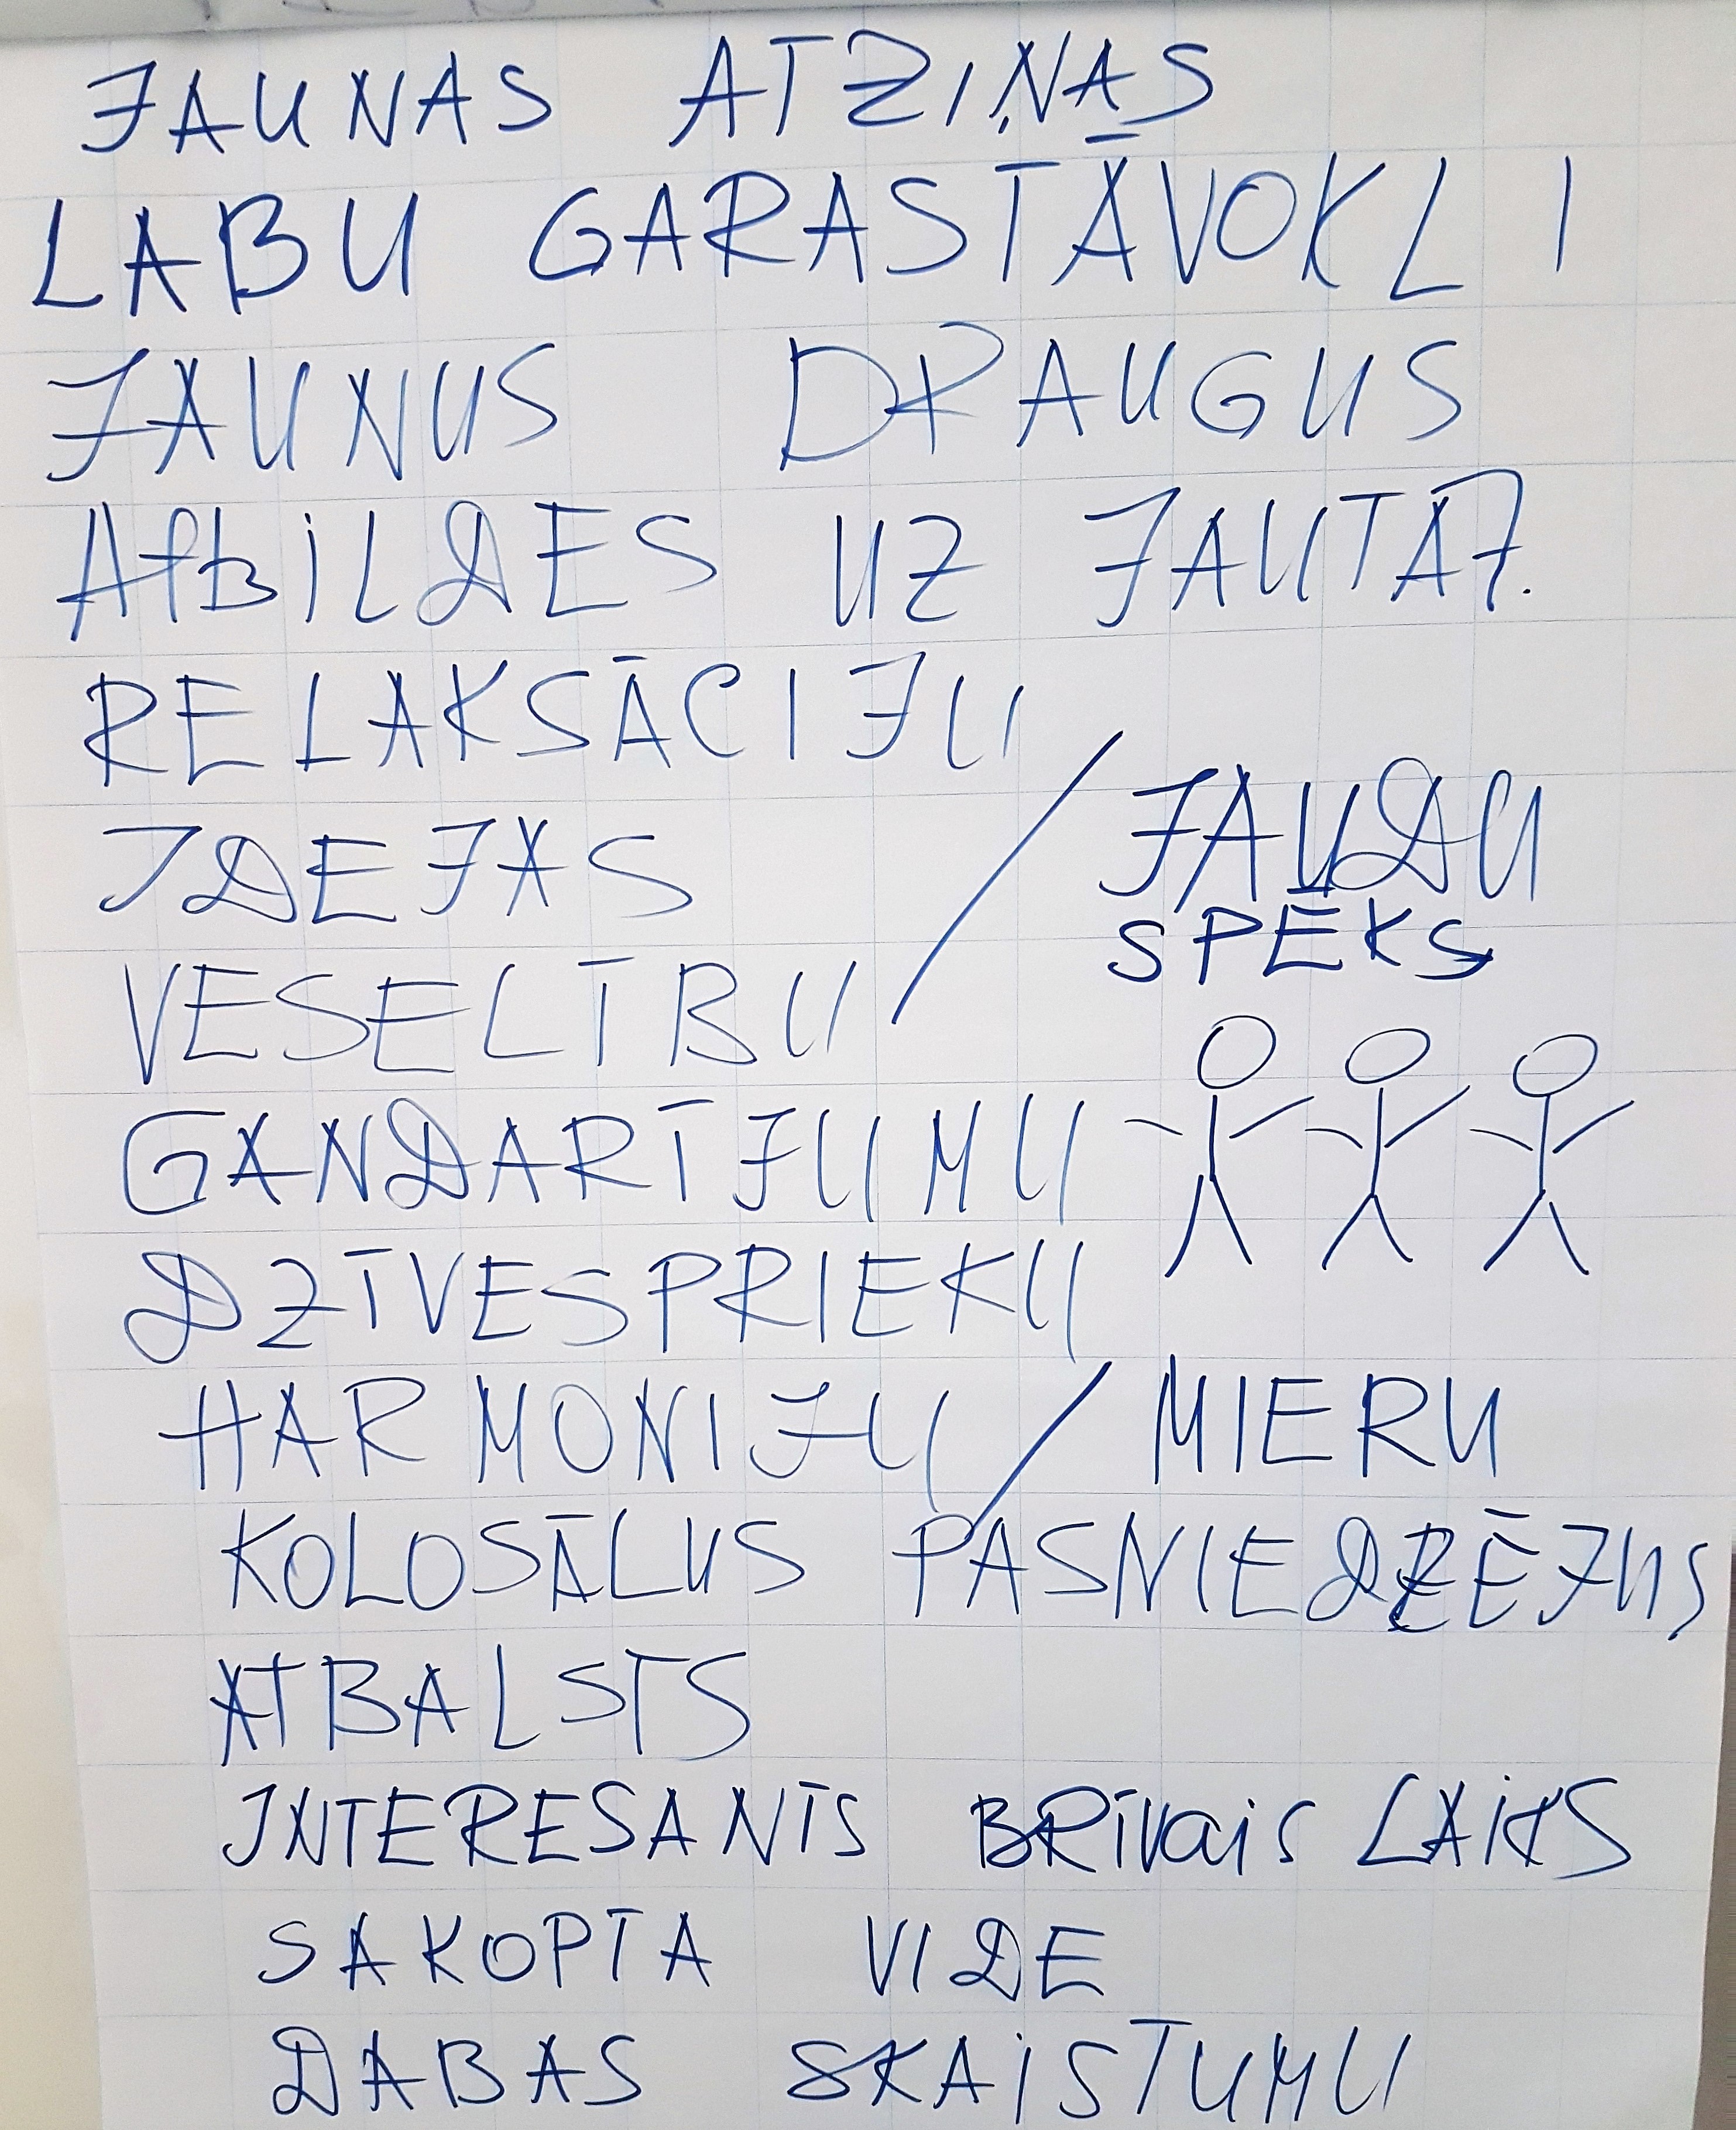 JAUNAS ATZIŅAS
LABU GARASTĀVOKLI
JAUNUS DRAUGUS
AtBILDES UZ JAUTĀJ.
RELAKSĀCIJU
IDEJAS
VESELĪBU / JAUDU
SPĒKS
GANDARĪJUMU
DZĪVESPRIEKU
HARMONIJU / MIERU
KOLOSĀLUS PASNIEDZĒJUS
ATBALSTS
INTERESANTS BRīvais LAiKS
SAKOPTA VIDE
DABAS SKAiSTUMU